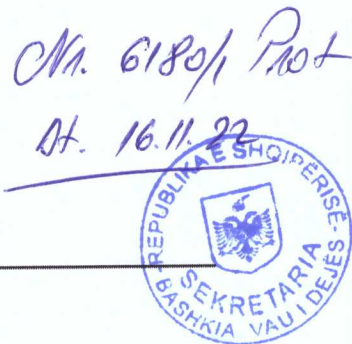 Nr. 6180/1 Prot
Dt. 16.11.22
REPUBLIKA E SHQIPËRISË
SEKRETARIA
BASHKIA VAU I DEJËS